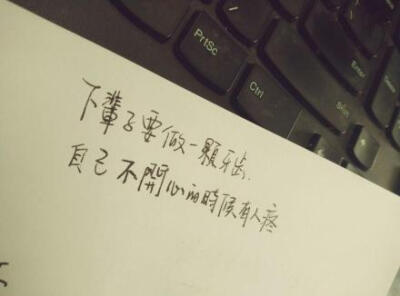 PrtSc
Ctrl
Enter
下輩子要做一顆牙齒.
自己不開心的時候有人疼